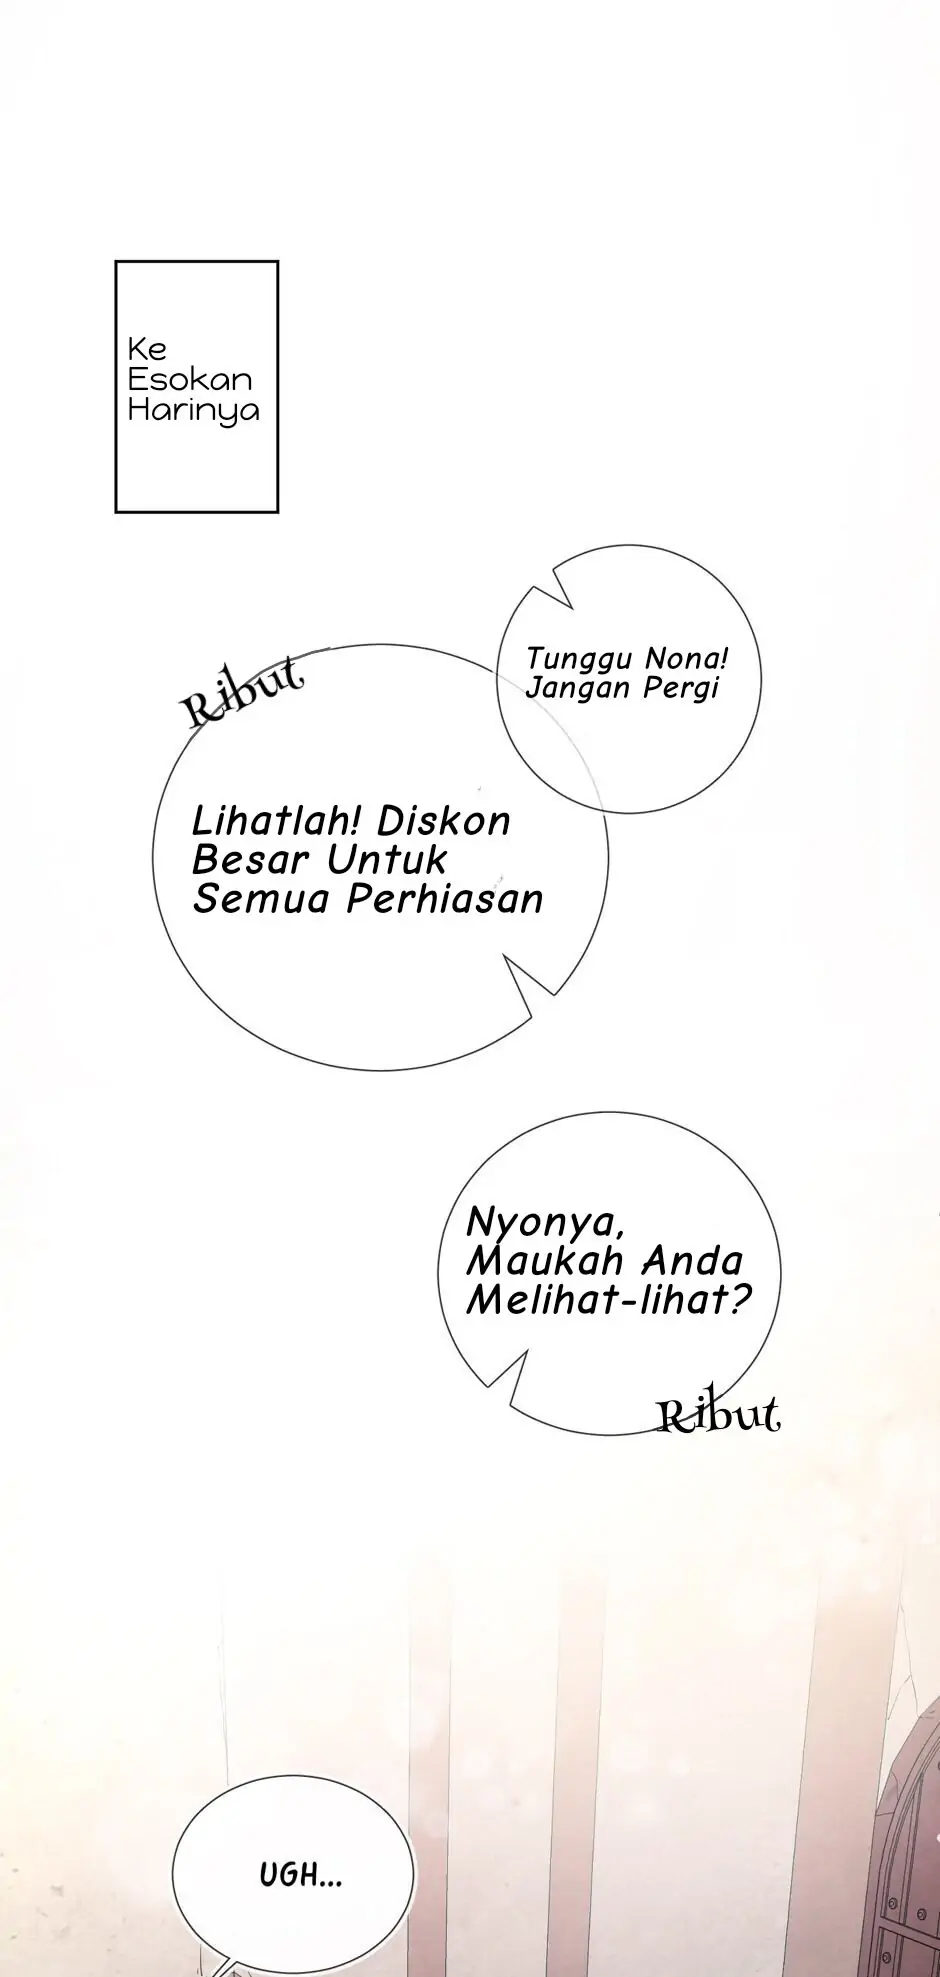 Ke
Esokan
Harinya
Tunggu Nona!
Jangan Pergi
Ribut
Lihatlah! Diskon
Besar Untuk
Semua Perhiasan
Nyonya,
Maukah Anda
Melihat-lihat?
Ribut
UGH...